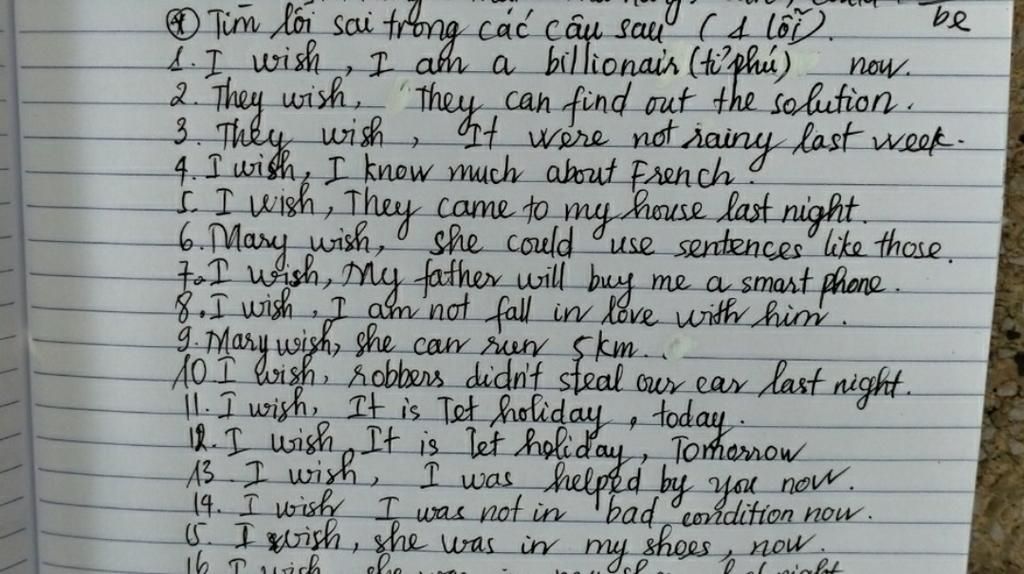 be
④ Tìm lỗi sai trong các câu sau (1 lỗi).
1. I wish, I am a billionair (tỉ phú) now.
2. They wish, They can find out the solution.
3. They wish, It were not rainy last week.
4. I wish, I know much about French.
5. I wish, They came to my house last night.
6. Mary wish, she could use sentences like those.
7. I wish, My father will buy me a smart phone.
8. I wish, I am not fall in love with him.
9. Mary wish, she can run 5km.
10 I wish, robbers didn't steal our car last night.
11. I wish, It is Tet holiday, today.
12. I wish, It is Tet holiday, Tomorrow
13. I wish, I was helped by you now.
14. I wish I was not in bad condition now.
15. I wish, she was in my shoes, now.
16 I wish, she was in